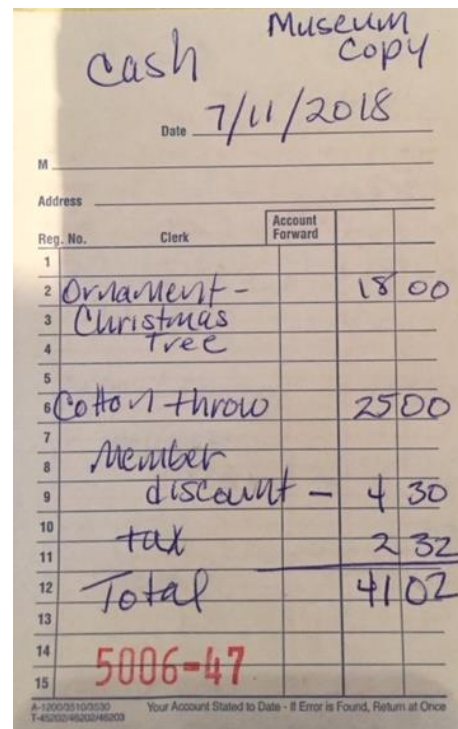 Museum
Cash Copy
Date 7/11/2018
M
Address
Reg. No. Clerk Account Forward
1
2 Ornament - 18 00
3 Christmas
4 Tree
5
6 Cotton throw 25 00
7
8 Member
9 discount - 4 30
10 tax
11 2 32
12 Total 41 02
13
14 5006-47
15
A-1200/3510/3530 Your Account Stated to Date - If Error is Found, Return at Once
T-45202/46202/46203